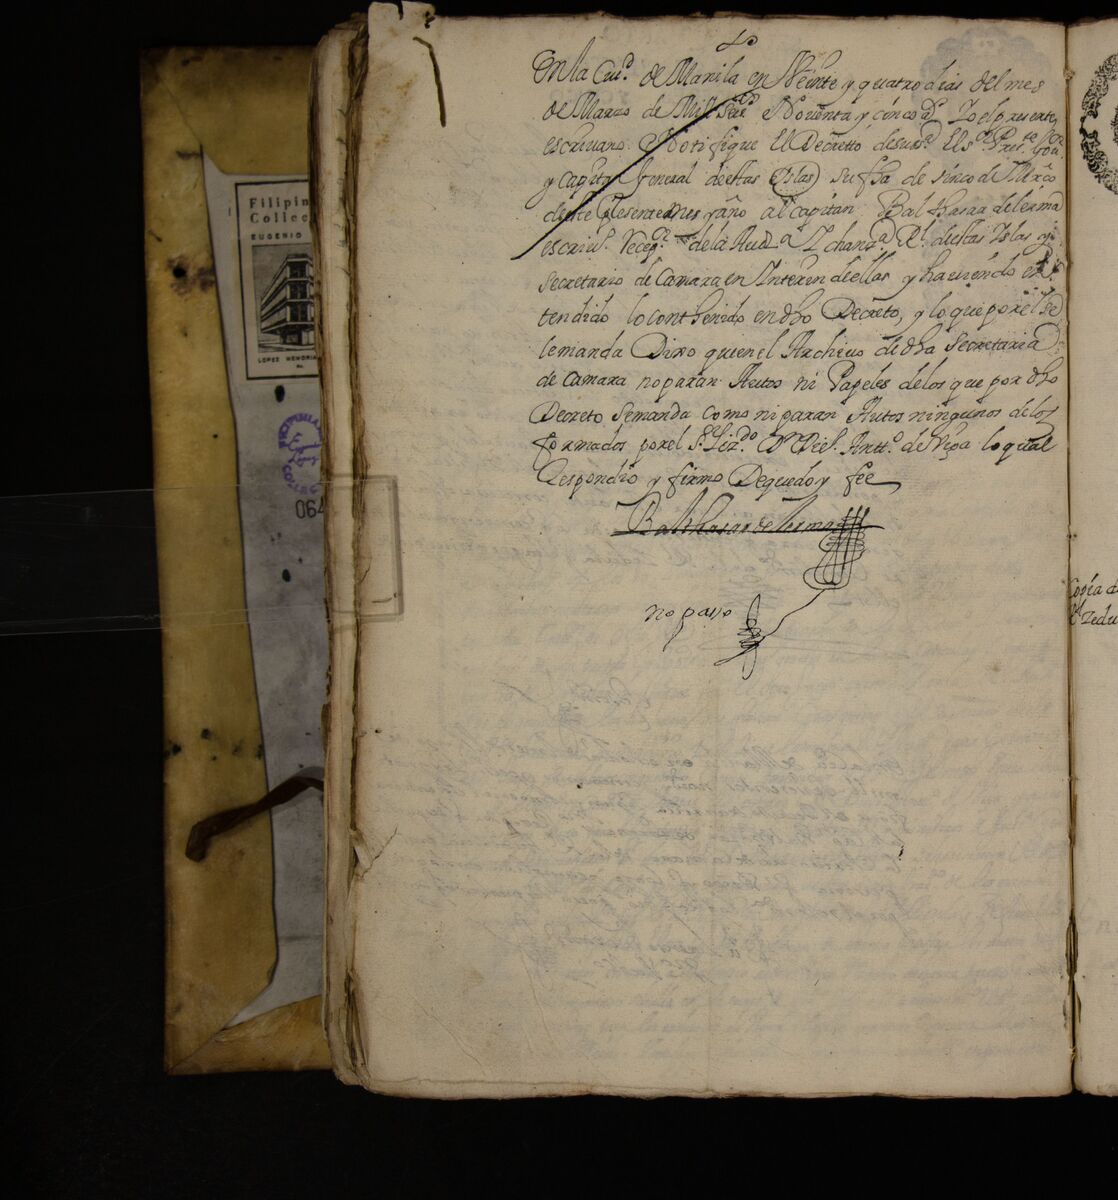 En la Ciu.d de Manila en Veinte y quatro dias del mes
de Marzo de Mill Seis.tos e Nouenta y cinco a.s Yo el presente
escriuano Notifique el Decretto desuso del S.r Press.te Gou.or
y Capitan General destas Islas su fha de sinco de Março
deste presente mes y año al Capitan Balthasar de lerma
escriu.o Recep.or de la Aud.a Y chanz.a R.l destas Islas y
secretario de Camara en Interin de ellas y hauiendo en
tendido lo conthenido en dho Decreto, y lo que por el se
le manda Dixo que en el Archiuo de dha Secretaria
de Camara no paran Autos ni Papeles de los que por dho
Decreto se manda como ni paran Autos ningunos de los
formados por el S.r Liz.do Dn antt.o de Viga lo qual
Respondio y firmo De quedoy fee
Balthasar de Lerma
no passo
Copia de
R.l Zedu
Filipin
Collec
EUGENIO
LOPEZ MEMORIA
064